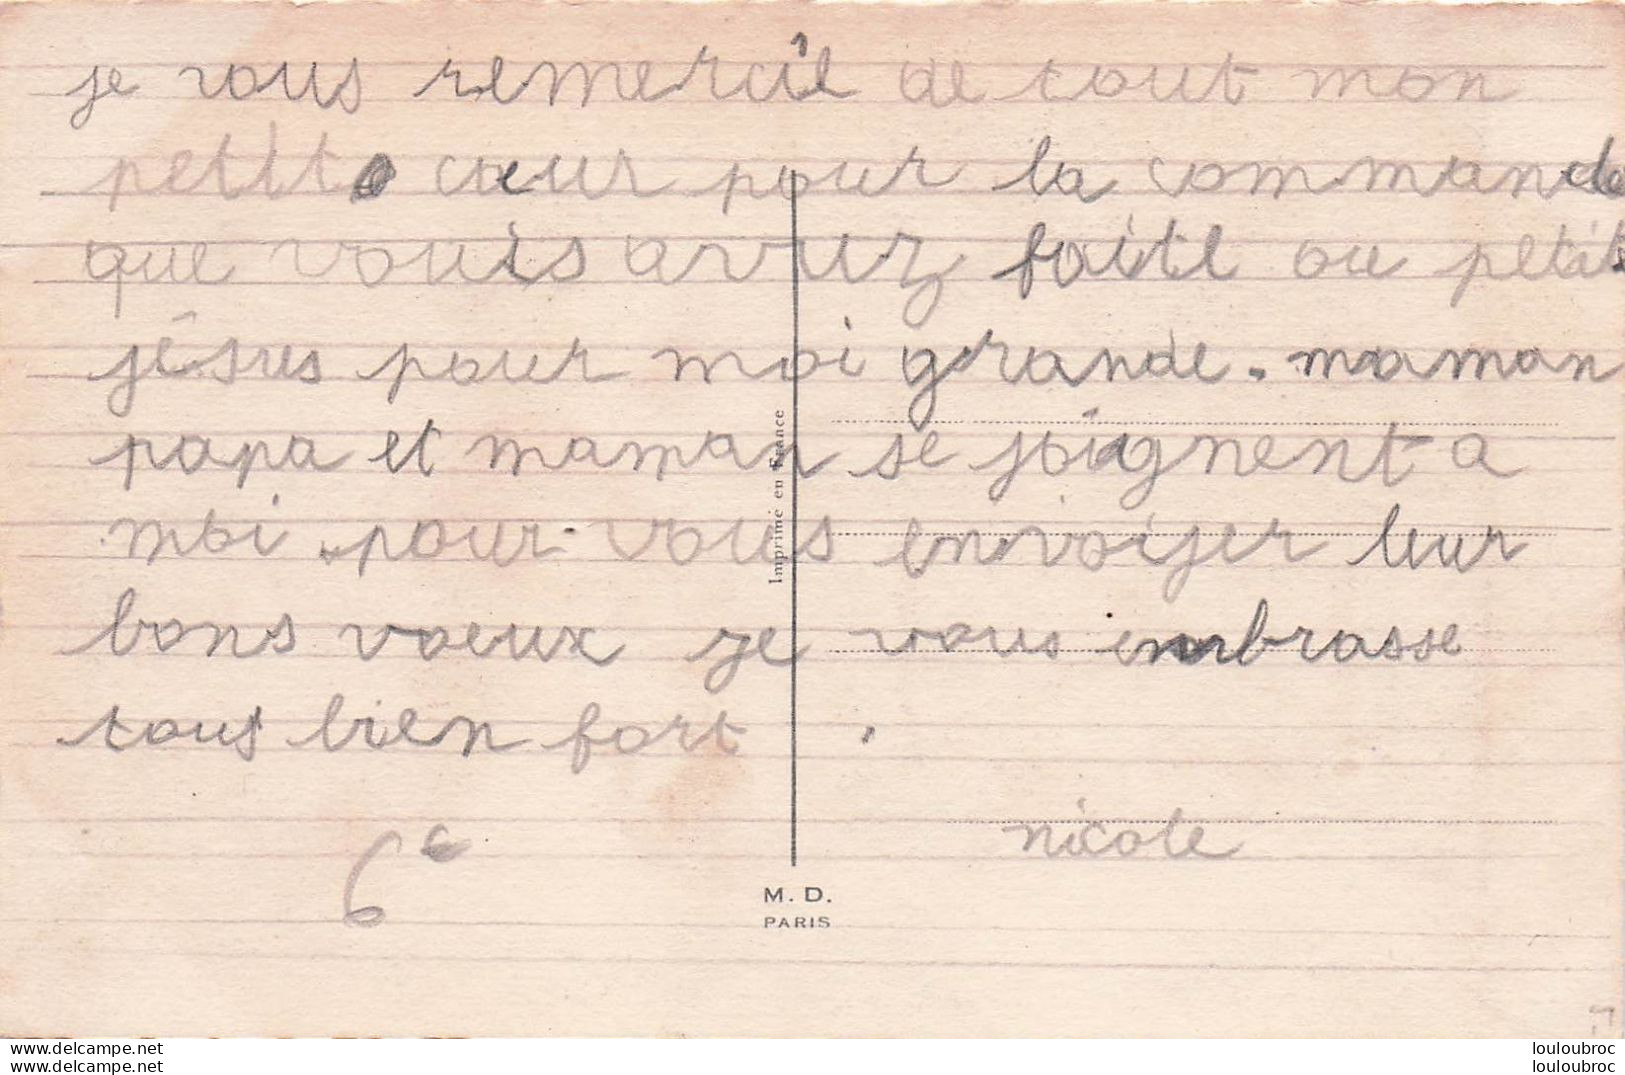 je vous remercie de tout mon
petit cœur pour la commande
que vouis avuez faite au petit
jésues pour moi grande. maman
papa et maman se joignent a
moi pour vous envoijer leur
bons voeux je vous embrasse
tous bien fort .
nicole
6e
Imprimé en France
M. D.
PARIS
louloubroc
louloubroc